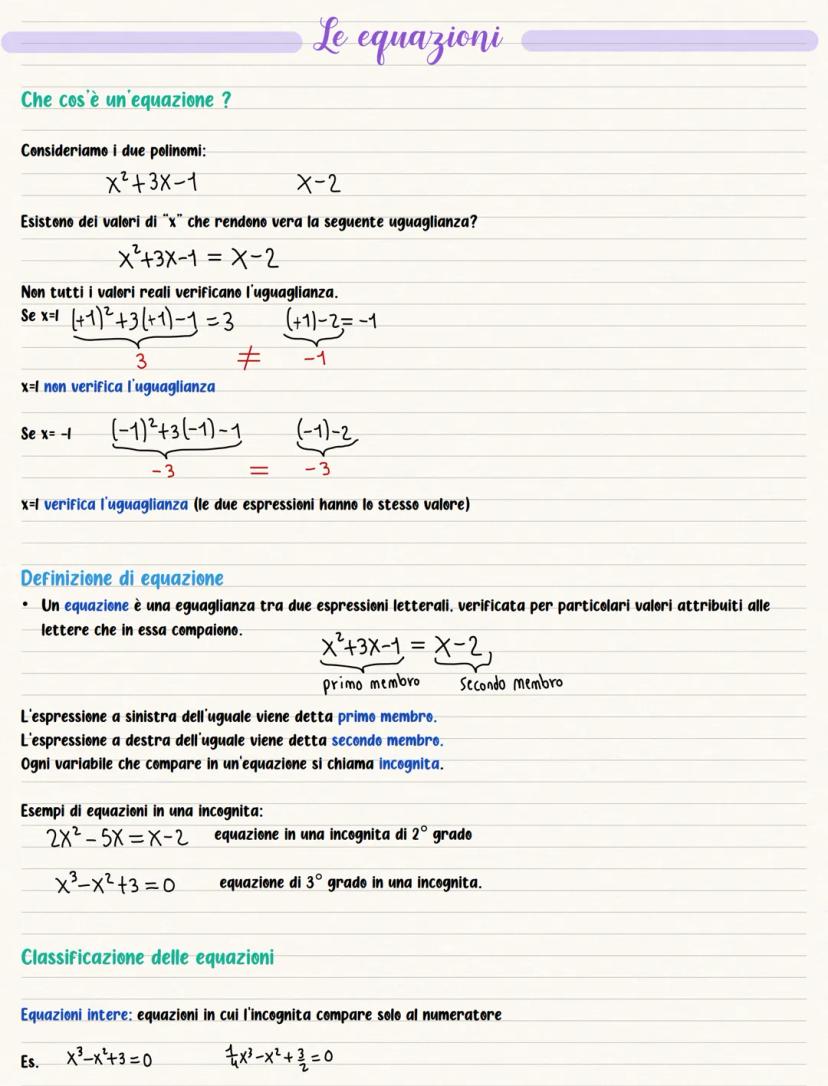 Le equazioni
Che cos'è un'equazione ?
Consideriamo i due polinomi:
x²+3x-1 x-2
Esistono dei valori di "x" che rendono vera la seguente uguaglianza?
x²+3x-1 = x-2
Non tutti i valori reali verificano l'uguaglianza.
Se x=1 (+1)²+3(+1)-1 = 3 (+1)-2 = -1
3 ≠ -1
x=1 non verifica l'uguaglianza
Se x= -1 (-1)²+3(-1)-1 (-1)-2
-3 = -3
x=1 verifica l'uguaglianza (le due espressioni hanno lo stesso valore)
Definizione di equazione
• Un equazione è una eguaglianza tra due espressioni letterali, verificata per particolari valori attribuiti alle
lettere che in essa compaiono.
x²+3x-1 = x-2,
primo membro secondo membro
L'espressione a sinistra dell'uguale viene detta primo membro.
L'espressione a destra dell'uguale viene detta secondo membro.
Ogni variabile che compare in un'equazione si chiama incognita.
Esempi di equazioni in una incognita:
2x² - 5x = x-2 equazione in una incognita di 2° grado
x³-x²+3 = 0 equazione di 3° grado in una incognita.
Classificazione delle equazioni
Equazioni intere: equazioni in cui l'incognita compare solo al numeratore
Es. x³-x²+3=0 1/4x³-x²+3/2=0